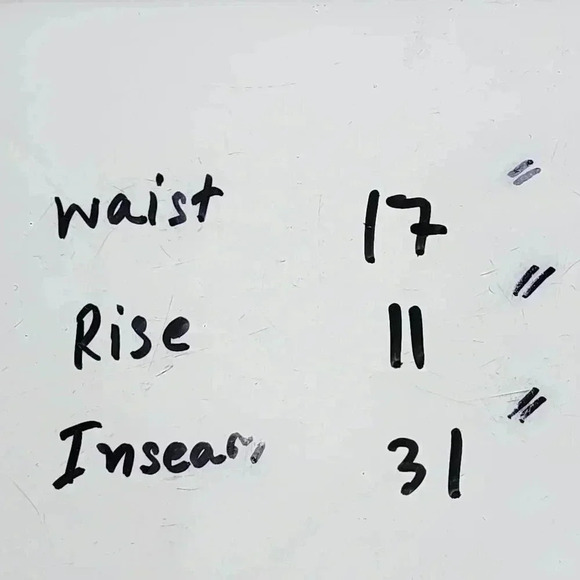 Waist 17 "
Rise 11 "
Inseam 31 "